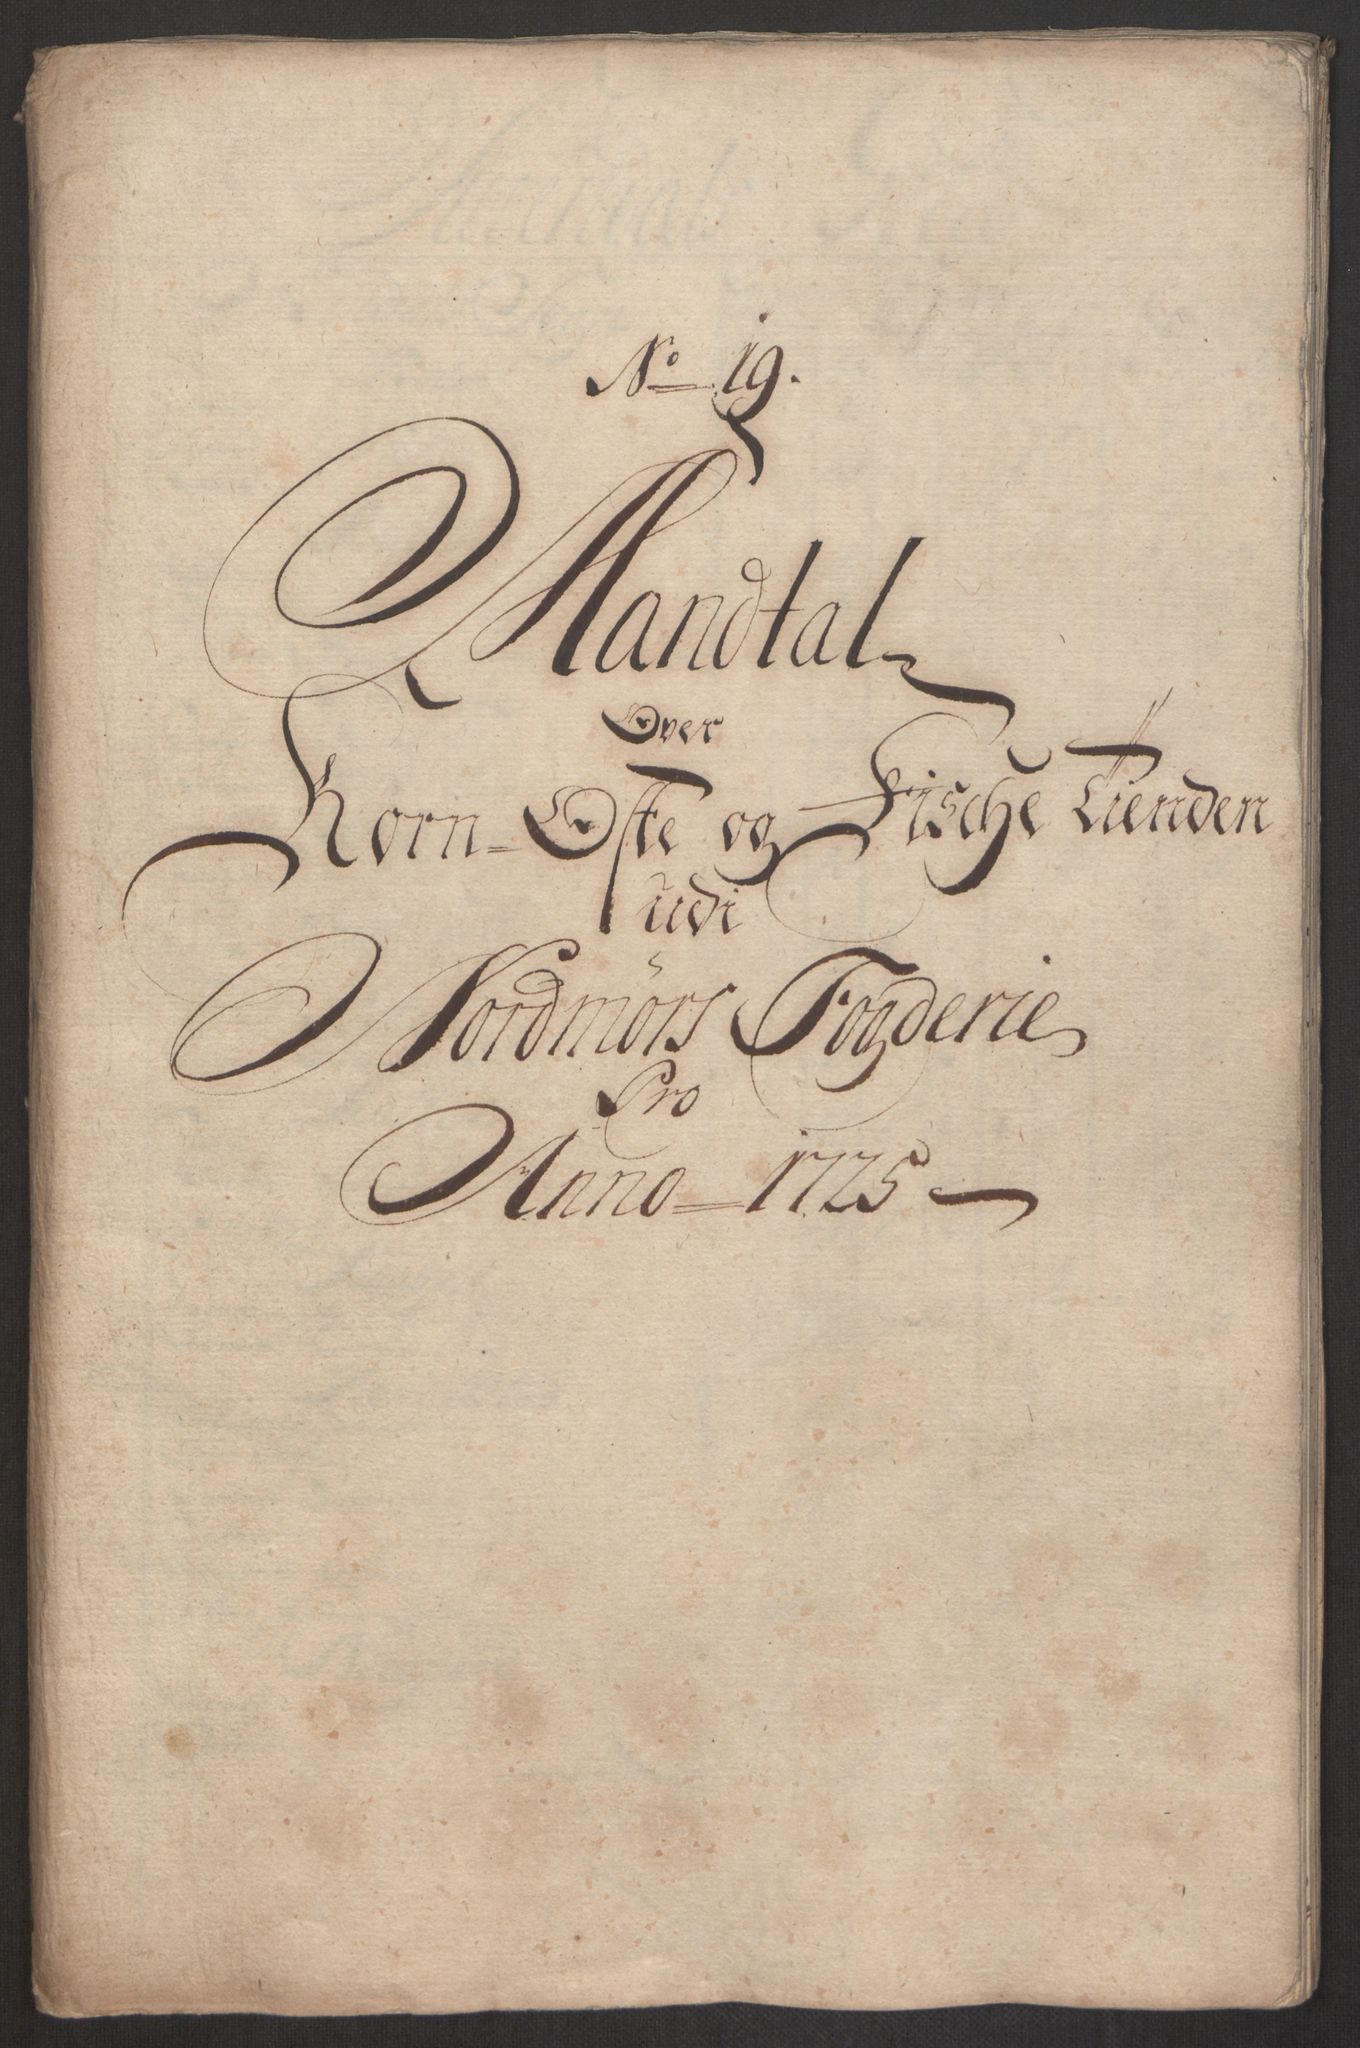 No 19.
Mandtal
Over
Korn- Oste og Fische Tienden
udi
Nordmörs Fogderie
Pro
Anno 1725